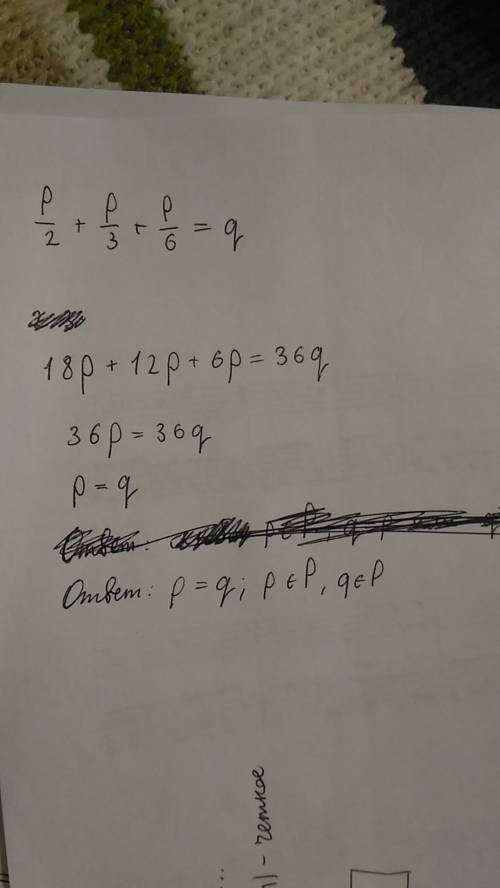 p/2 + p/3 + p/6 = q
18p + 12p + 6p = 36q
36p = 36q
p = q
Ответ:
Ответ: p = q; p ∈ P, q ∈ P
...
| - четное